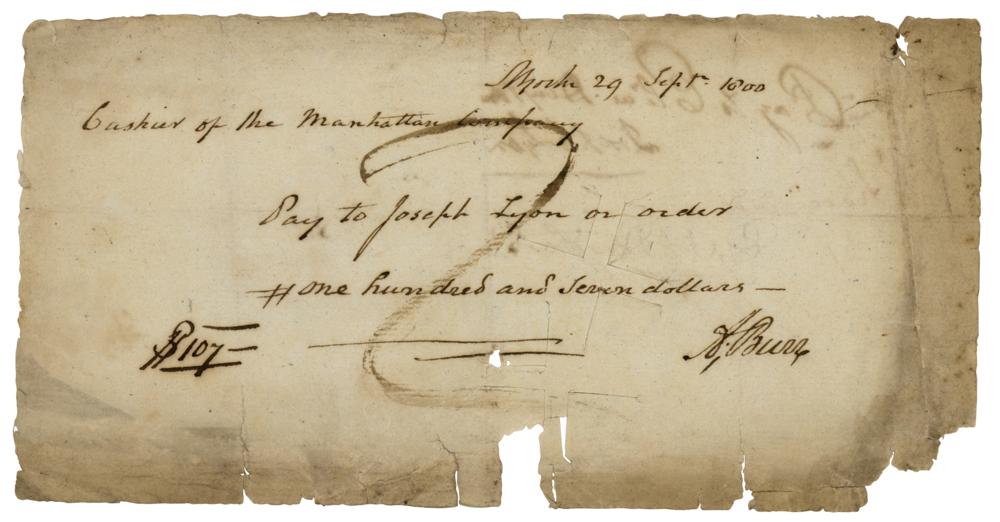 NYork 29 Sept. 1800
Cashier of the Manhattan Company
Pay to Joseph Lyon or order
# one hundred and seven dollars —
$107 —
A. Burr